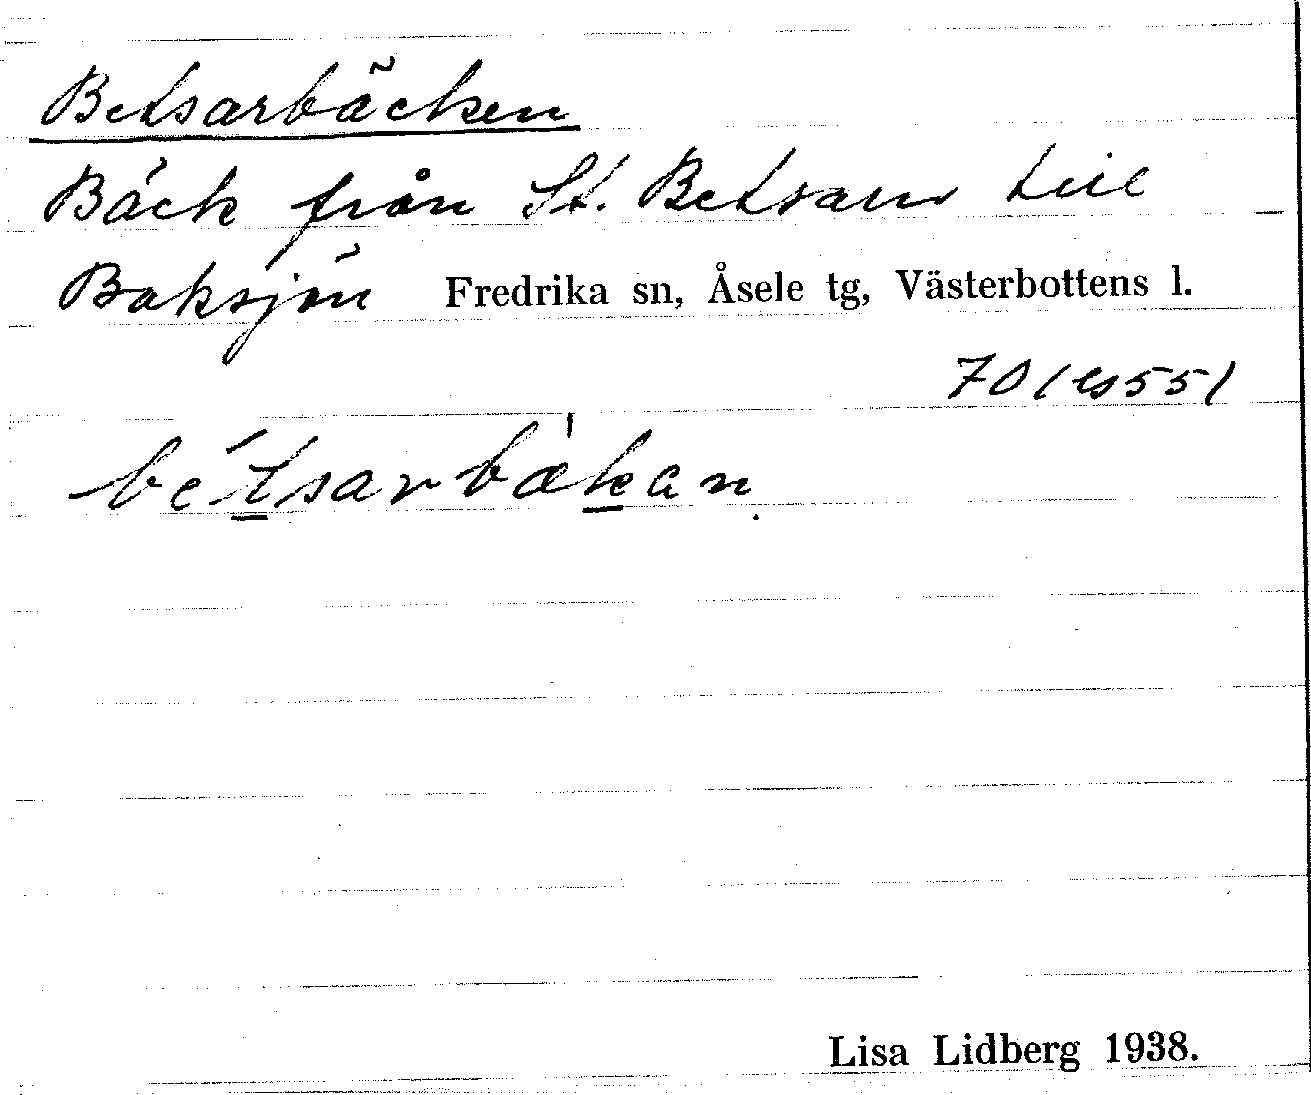 Betsarbäcken
Bäck från St. Betsarn till
Baksjön Fredrika sn, Åsele tg, Västerbottens l.
bétsarbäkan.
Lisa Lidberg 1938.